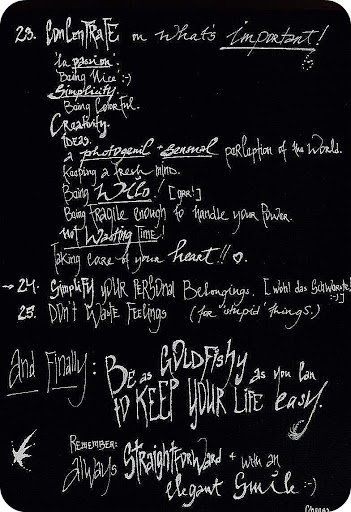 23. CONCENTRATE on what's important!
in passion.
Being Nice :-)
Simplicity.
Being Colorful.
Creativity.
Ideas.
a photogenic + sensual perception of the World.
Keeping a fresh mind.
Being WILD! [grr!]
Being fragile enough to handle your Power.
not Wasting Time!
Taking care of your heart!! ♡.
→ 24. Simplify YOUR PERSONAL Belongings. [wohl das Schwerste! :-)]
25. DON'T Waste Feelings (for 'stupid' things.)
And Finally: Be as GOLDfishy as you can
to KEEP YOUR LiFE easy.
Remember:
always StraightForward + with an
elegant Smile :-)